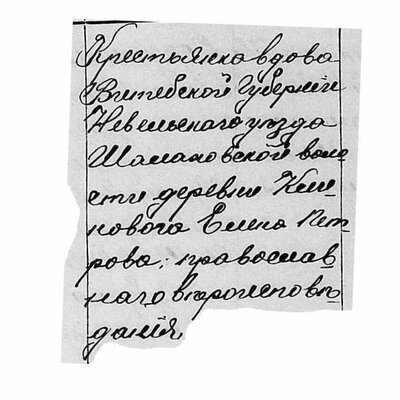 Крестьянка вдова
Витебской Губерніи
Невельскаго уѣзда
Шалаховской воло
сти деревни Кли
новога Елена Пет
рова; православ
наго вѣроисповѣ
данія,